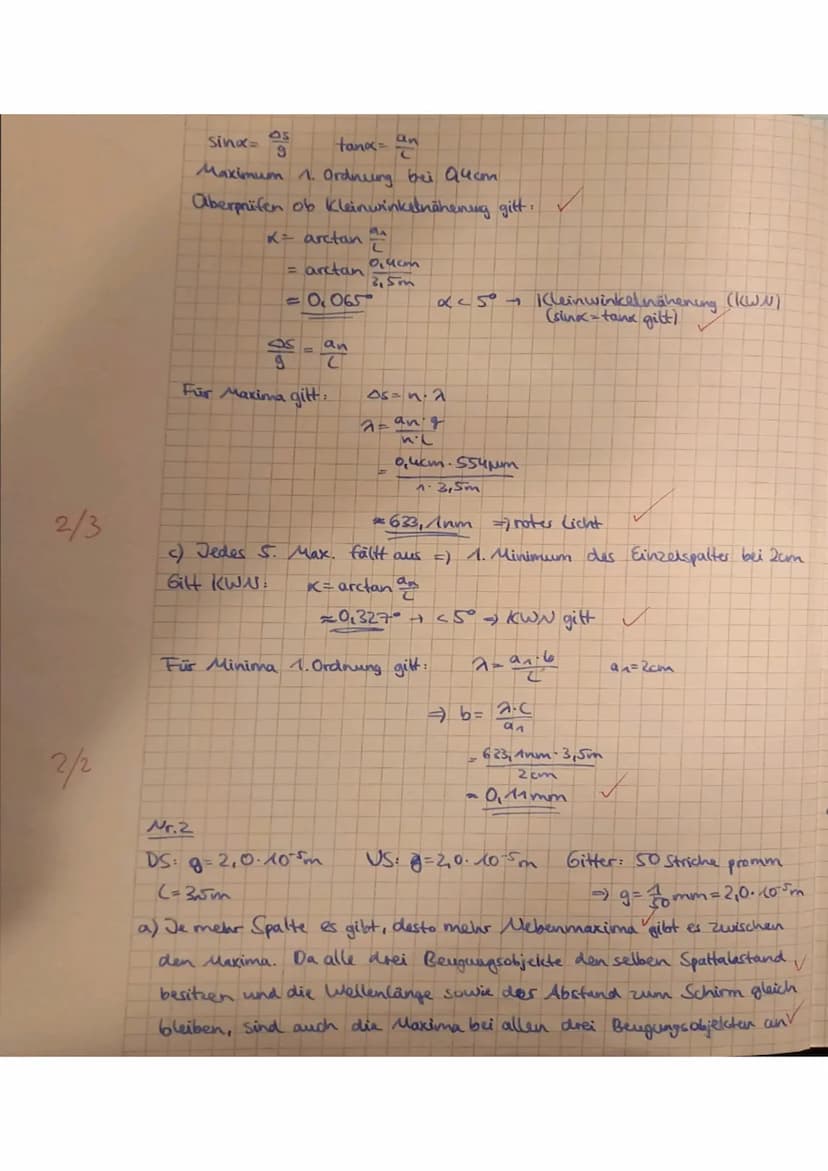 sinα = Δs/g   tanα = an/L
Maximum 1. Ordnung bei 0,4cm
Überprüfen ob Kleinwinkelnäherung gilt: ✓
α = arctan an/L
= arctan 0,4cm/3,5m
= 0,065°   α < 5° → Kleinwinkelnäherung (KWN)
(sinα = tanα gilt) ✓
Δs/g = an/L
Für Maxima gilt:   Δs = n·λ
λ = an·g/n·L
= 0,4cm · 554µm/1 · 3,5m
2/3   ≈ 633,1nm ⇒ rotes Licht ✓
c) Jedes 5. Max. fällt aus ⇒ 1. Minimum des Einzelspaltes bei 2cm
Gilt KWN:   α = arctan an/L
≈ 0,327° → < 5° → KWN gilt ✓
Für Minima 1. Ordnung gilt:   λ = a1·b/L   a1 = 2cm
⇒ b = λ·L/a1
2/2   = 633,1nm · 3,5m/2cm
≈ 0,11mm ✓
Nr. 2
DS: g = 2,0·10⁻⁵m   VS: g = 2,0·10⁻⁵m   Gitter: 50 Striche pro mm
L = 3,5m   ⇒ g = 1/50 mm = 2,0·10⁻⁵m
a) Je mehr Spalte es gibt, desto mehr Nebenmaxima ✓ gibt es zwischen
den Maxima. Da alle drei Beugungsobjekte den selben Spaltabstand ✓
besitzen und die Wellenlänge sowie der Abstand zum Schirm gleich
bleiben, sind auch die Maxima bei allen drei Beugungsobjekten an ✓